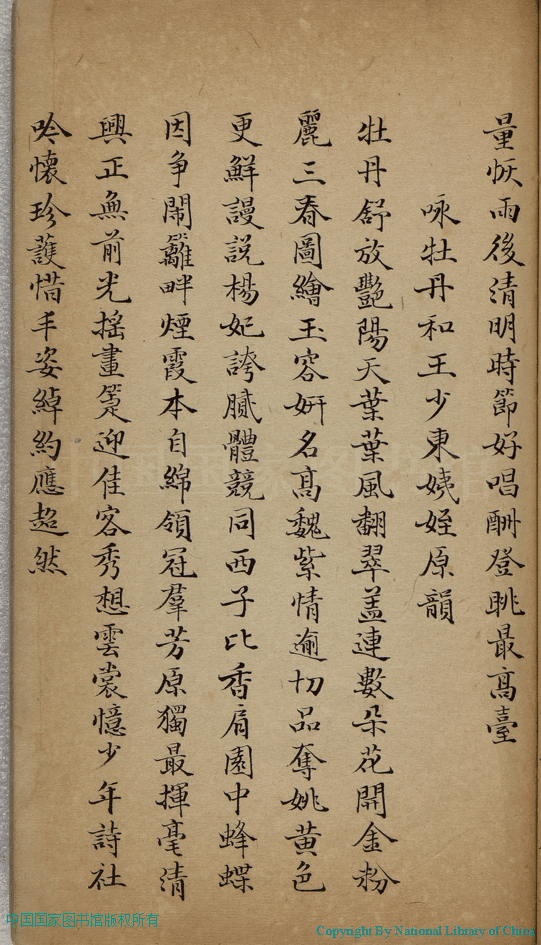 量恢雨後清明時節好唱酬登眺最高臺
咏牡丹和王少東姨姪原韻
牡丹舒放艷陽天葉葉風翻翠盖連數朵花開金粉
麗三春圖繪玉容妍名高魏紫情逾切品奪姚黃色
更鮮謾説楊妃誇膩體競同西子比香肩園中蜂蝶
因争鬧籬畔煙霞本自綿領冠羣芳原獨最揮毫清
興正無前光搖畫箑迎佳客秀想雲裳憶少年詩社
吟懷珍護惜丰姿綽約應超然
中国国家图书馆版权所有
Copyright By National Library of China